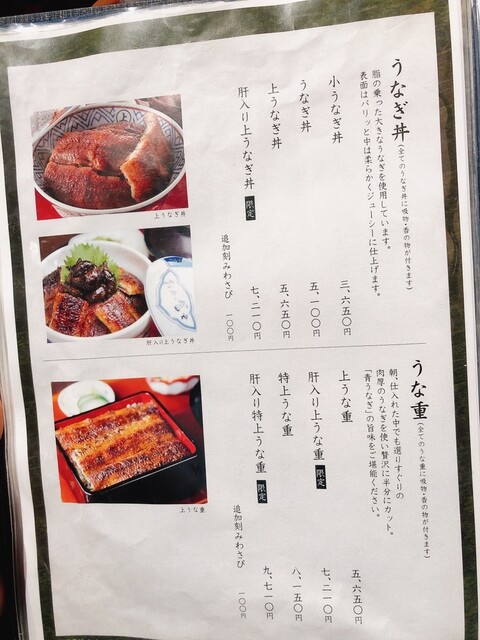 うなぎ丼(全てのうなぎ丼に吸物・香の物が付きます)
脂の乗った大きなうなぎを使用しています。
表面はパリッと中は柔らかくジューシーに仕上げます。
小うなぎ丼 三、六五〇円
うなぎ丼 五、一〇〇円
上うなぎ丼 五、六五〇円
肝入り上うなぎ丼 限定 七、二一〇円
追加刻みわさび 一〇〇円
上うなぎ丼
肝入り上うなぎ丼
うな重(全てのうな重に吸物・香の物が付きます)
朝、仕入れた中でも選りすぐりの
肉厚のうなぎを使い贅沢に半分にカット。
「青うなぎ」の旨味をご堪能ください。
上うな重 五、六五〇円
肝入り上うな重 限定 七、二一〇円
特上うな重 八、一五〇円
肝入り特上うな重 限定 九、七一〇円
追加刻みわさび 一〇〇円
上うな重